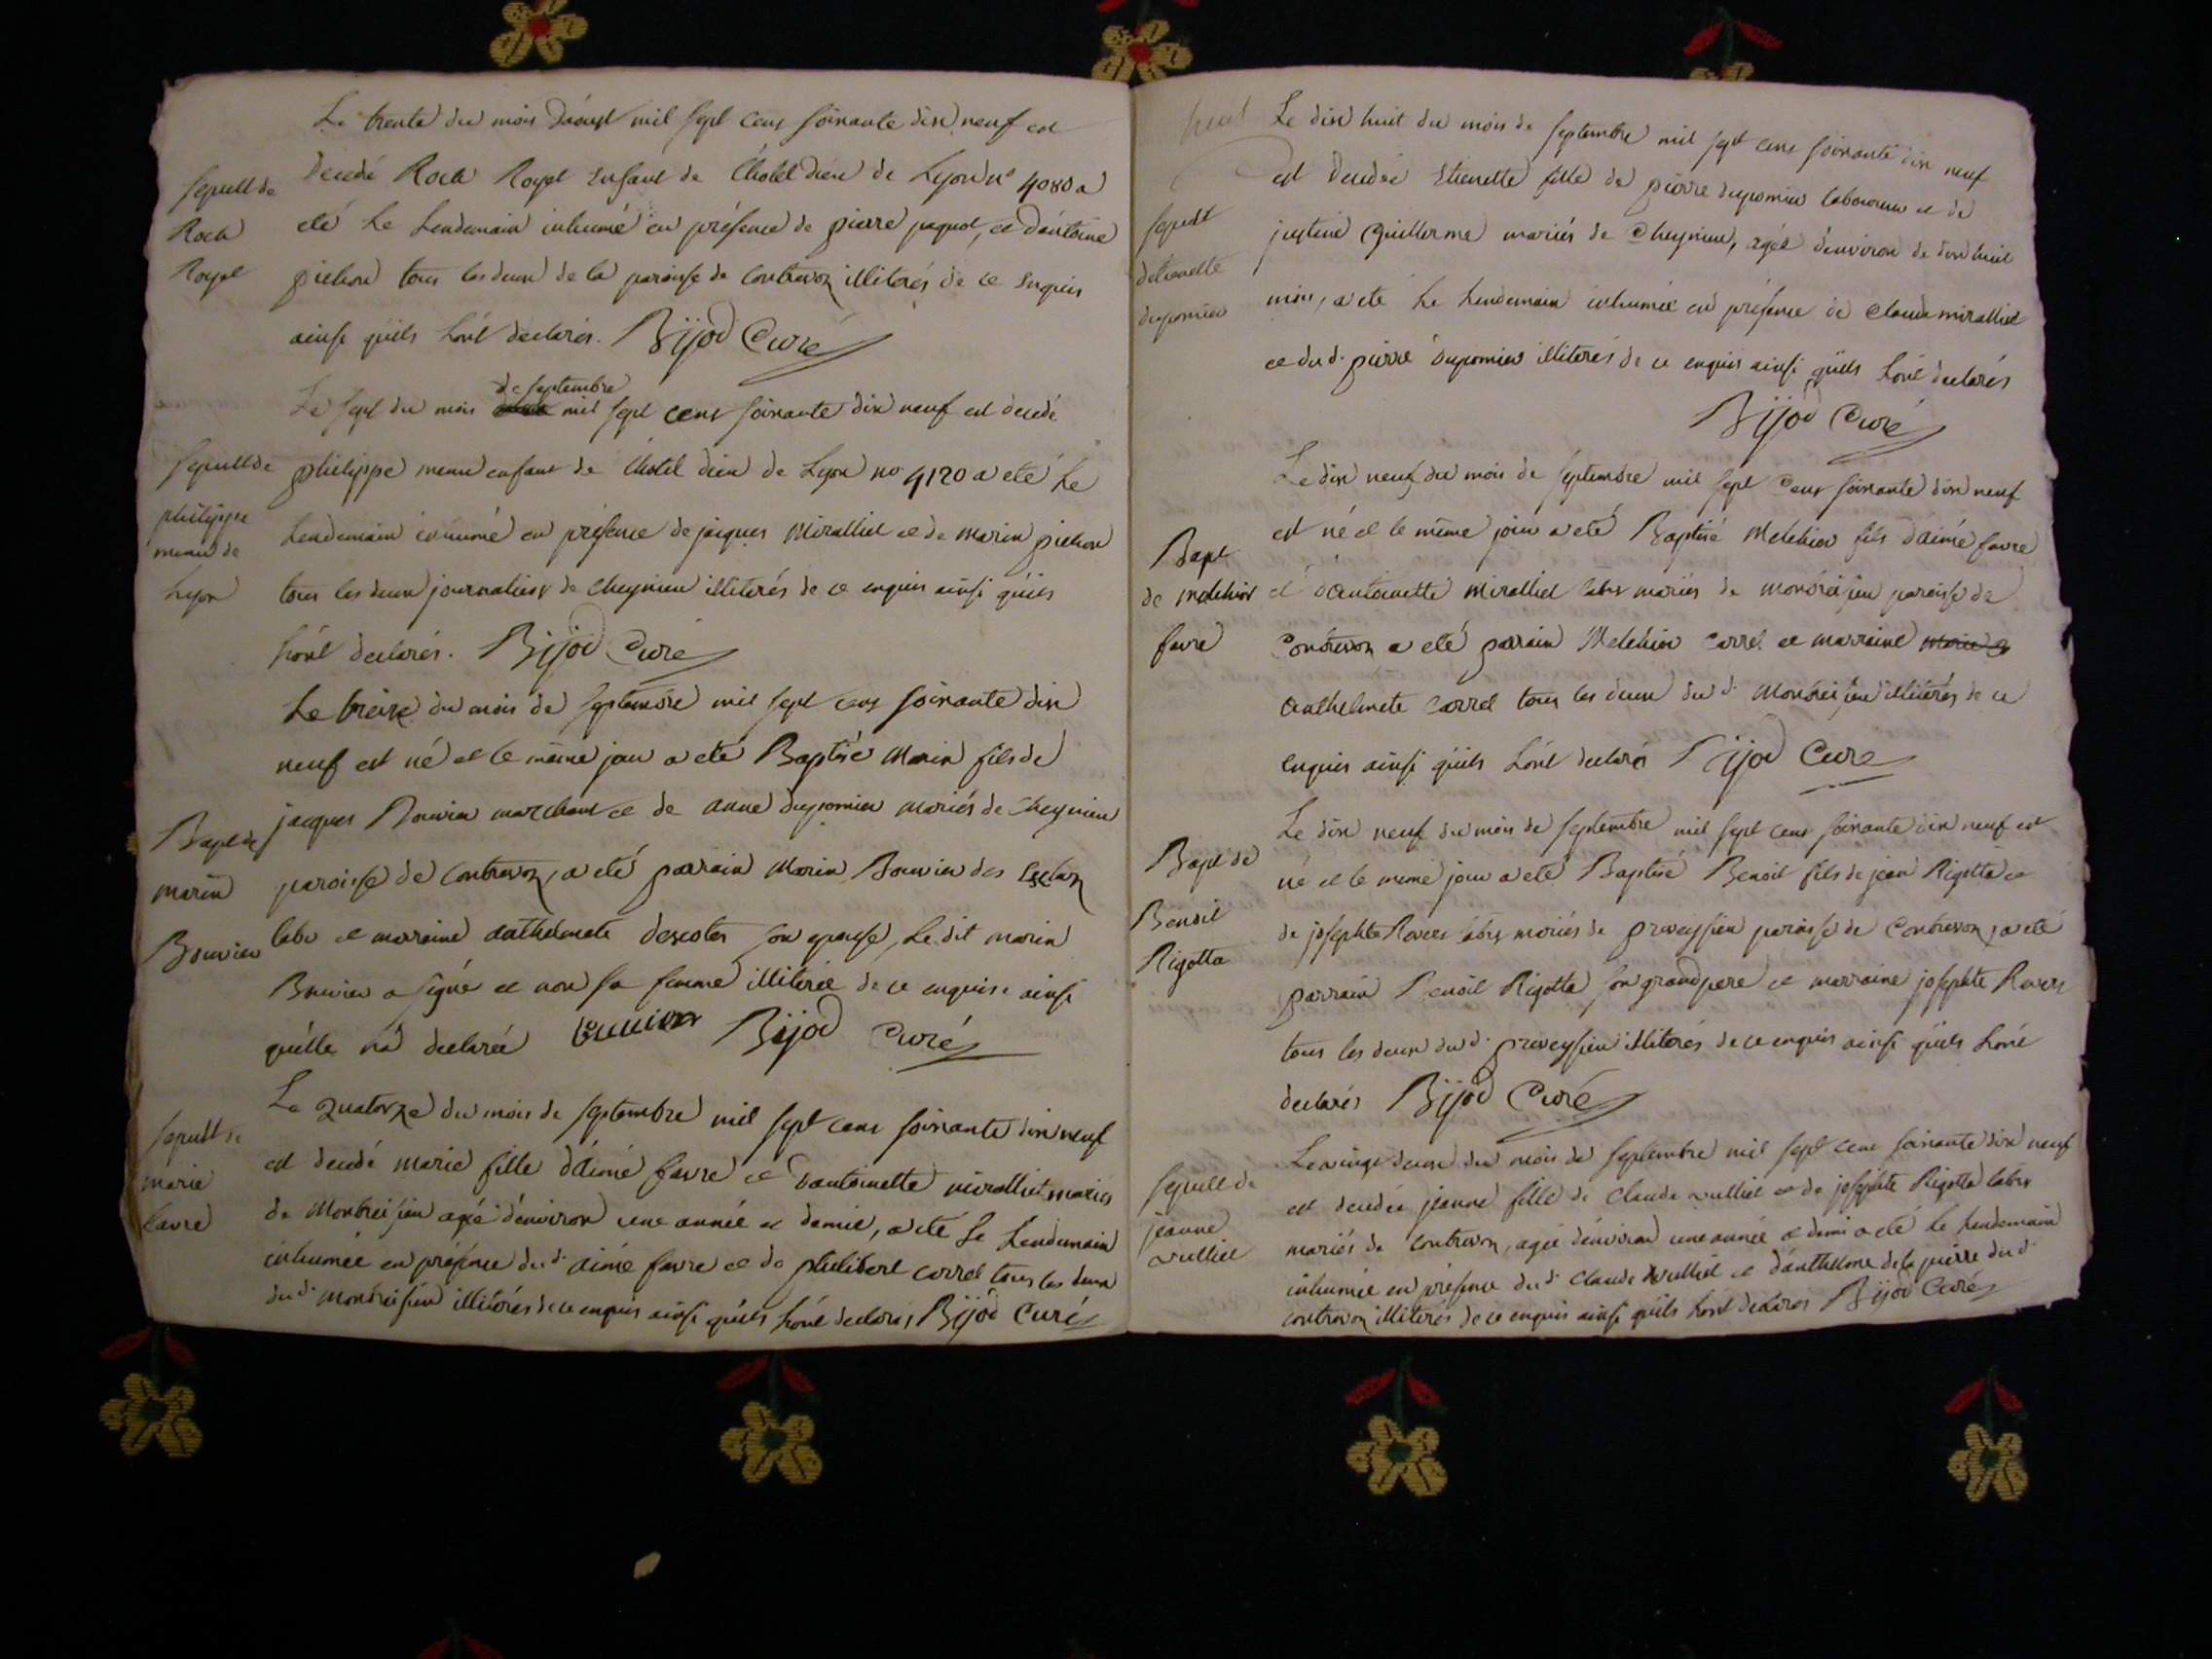 Le trente du mois d'aoust mil sept cens soixante dix neuf est
decedé Roch Royet enfant de l'hotel dieu de Lyon n° 4080 a
eté le lendemain inhumé en présence de pierre paquet, et d'antoine
pichon tous les deux de la paroisse de contrevoz illiterés de ce enquis
ainsi quils l'ont declarés. Bijod Curé
sepult de
Roch
Royet
de septembre
Le sept du mois mil sept cens soixante dix neuf est decedé
philippe menu enfant de l'hotel dieu de Lyon no 4120 a eté le
lendemain inhumé en présence de jacques Miralliet et de marin pichon
tous les deux journaliers de cheynieu illiterés de ce enquis ainsi quils
l'ont declarés. Bijod Curé
sepult de
philippe
menu de
Lyon
Le treize du mois de septembre mil sept cens soixante dix
neuf est né et le même jour a eté Baptisé Marin fils de
jacques Bouvier marchand et de anne dupomier mariés de cheynieu
paroisse de contrevoz, a eté parrain Marin Bouvier des
labr et marraine anthelmete descotes son epouse, Ledit marin
Bouvier a signé et non sa femme illiterée de ce enquise ainsi
qu'elle l'a declarée Buuier Bijod Curé
Bapt de
marin
Bouvier
Le Quatorze du mois de septembre mil sept cens soixante dix neuf
est decedé marie fille d'aimé favre et d'antoinette miralliet mariés
de Montbreisieu agée d'environ une année et demie, a eté le lendemain
inhumée en présence dud. aimé favre et de philibert carrel tous les deux
dud. montbreisieu illiterés de ce enquis ainsi quils l'ont declarés Bijod Curé
sepult de
marie
favre
huit
Le dix huit du mois de septembre mil sept cens soixante dix neuf
est decedée Etienette fille de pierre dupomier laboureur et de
justine Guillerme mariés de Cheynieu, agée d'environ de dix huit
mois, a eté le lendemain inhumée en présence de Claude miralliet
et dud. pierre dupomier illiterés de ce enquis ainsi quils l'ont declarés
Bijod Curé
sepult
detienette
dupomier
Le dix neuf du mois de septembre mil sept cens soixante dix neuf
est né et le même jour a eté Baptisé Melchior fils d'aimé favre
et d'antoinette Miralliet labrs mariés de monbreisieu paroisse de
Contrevoz a eté parrain Melchior carrel et marraine
anthelmete carrel tous les deux dud. Monbreisieu illiterés de ce
enquis ainsi quils l'ont declarés Bijod Curé
Bapt
de melchior
favre
Le dix neuf du mois de septembre mil sept cens soixante dix neuf est
né et le même jour a eté Baptisé Benoit fils de jean Rigotta et
de josephte Ravers labrs mariés de preveysieu paroisse de Contrevoz, a eté
parrain Benoit Rigotta son grand pere et marraine josephte Ravers
tous les deux dud. preveysieu illiterés de ce enquis ainsi quils l'ont
declarés Bijod Curé
Bapt de
Benoit
Rigotta
Le vingt deux du mois de septembre mil sept cens soixante dix neuf
est decedée jeanne fille de claude vulliet et de josephte Rigotta labrs
mariés de contrevoz, agée d'environ une année et demi a eté le lendemain
inhumée en présence dud. claude vulliet et d'anthelme de la pierre dud.
contrevoz illiterés de ce enquis ainsi quils l'ont declarés Bijod Curé
sepult de
jeanne
vulliet